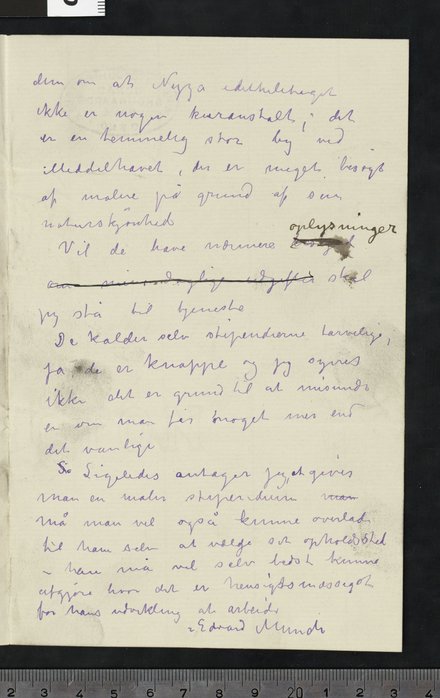 dem om at Nizza idetheletaget
ikke er nogen kuranstalt; det
er en temmelig stor by ved
Middelhavet, der er meget besøgt
af malere på grund af sin
naturskjønhed
Vil de have nærmere oplysninger
om mine daglige udgifter skal
jeg stå til tjeneste
De kalder selv stipendierne tarvelige,
ja de er knappe og jeg synes
ikke det er grund til at misunde
en om man får noget mer end
det vanlige
Ligeledes antager jeg, at gives
man en maler stipendium man
må man vel også kunne overlade
til ham selv at vælge sit opholdssted
– han må vel selv bedst kunne
afgjøre hvor det er hensigtsmæssigst
for hans udvikling at arbeide
Edvard Munch
20 1 2 3 4 5 6 7 8 9 30 1 2 3